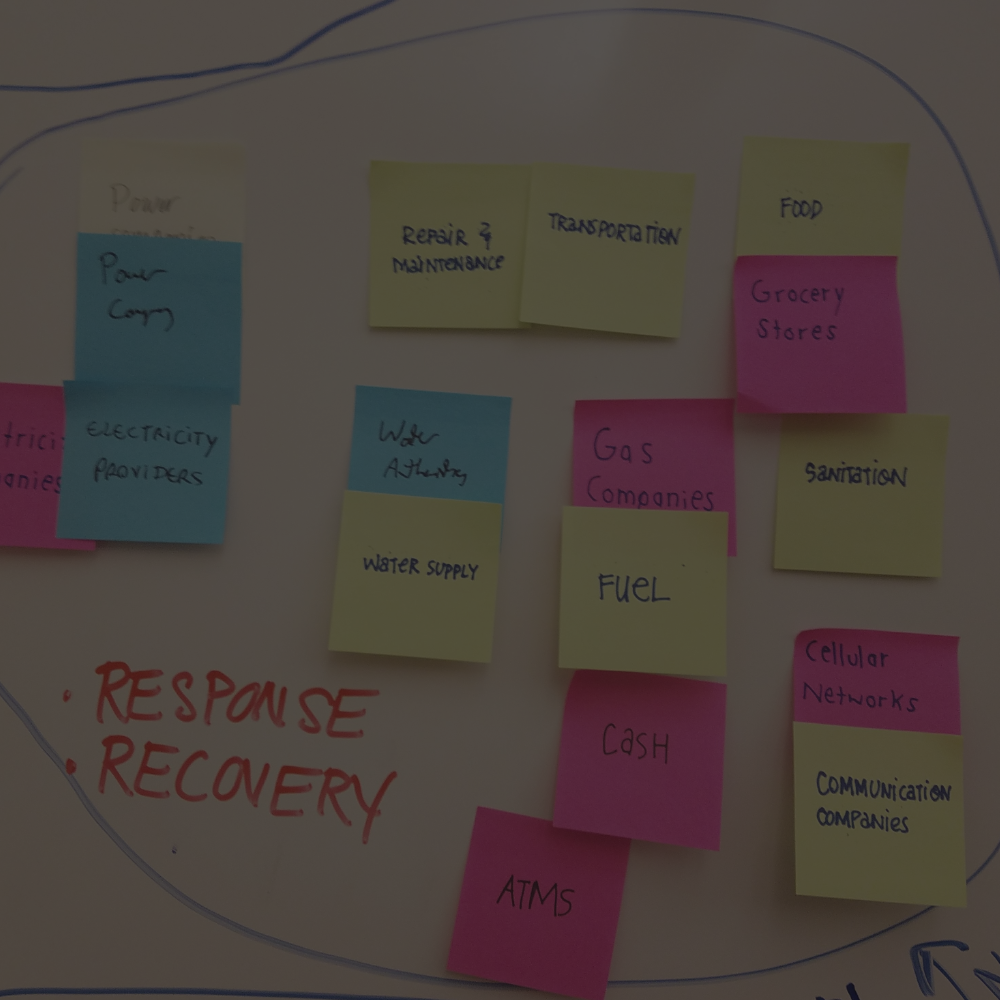 Power
Power
Company
ELECTRICITY
PROVIDERS
REPAIR &
MAINTENANCE
TRANSPORTATION
FOOD
Grocery
Stores
Water
WATER SUPPLY
Gas
Companies
FUEL
SANITATION
CASH
ATMS
Cellular
Networks
COMMUNICATION
COMPANIES
• RESPONSE
• RECOVERY